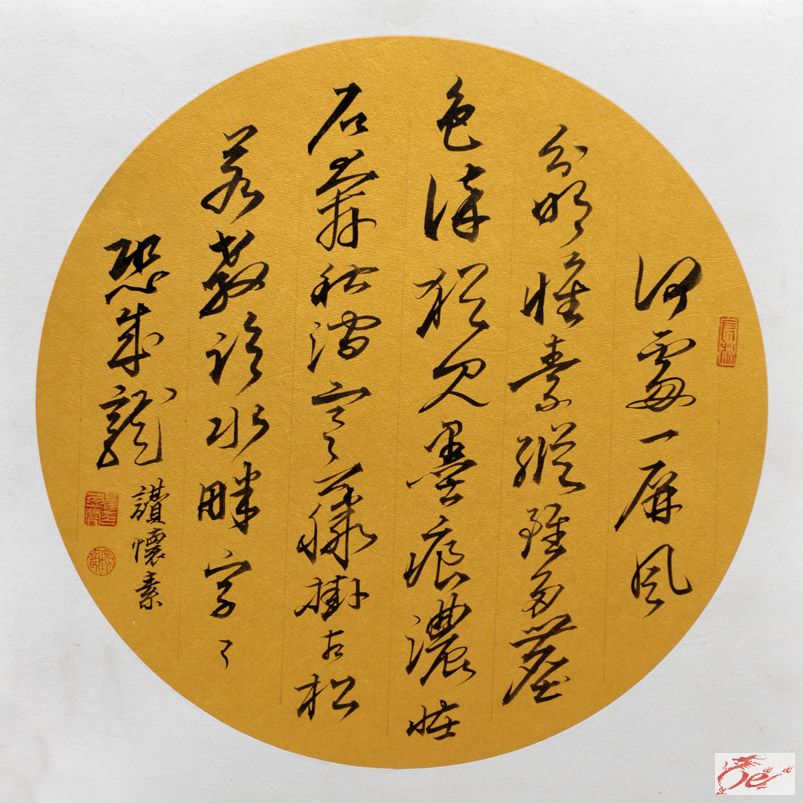 何處一屏風
分明懷素蹤雖多塵
色染猶見墨痕濃怪
石奔秋澗寒藤掛古松
若教臨水畔字々
恐成龍
讚懷素